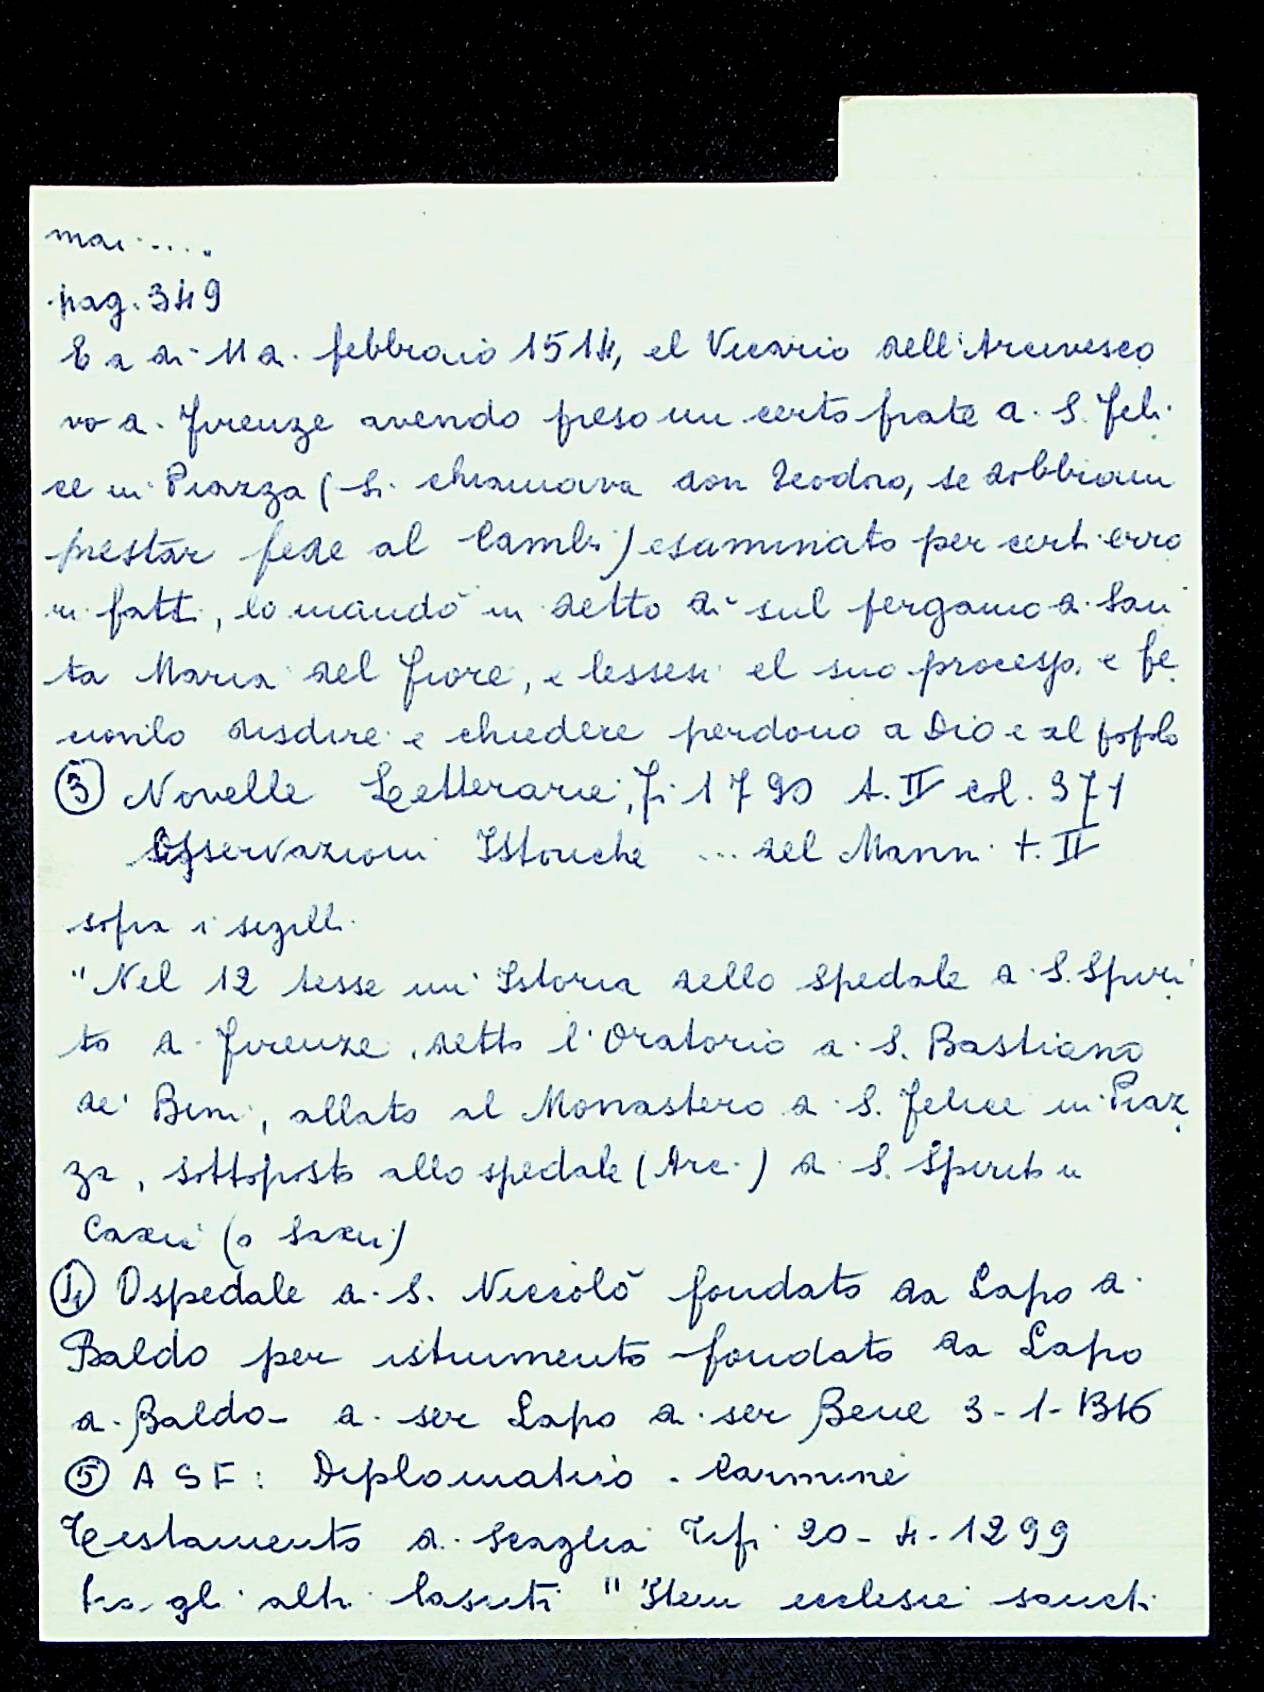 mai .....
pag. 349
E a dì 11 di febbraio 1514, el Vicario dell'Arcivesco
vo di Firenze avendo preso un certo frate di S. Feli
ce in Piazza (si chiamava don Teodoro, se dobbiam
prestar fede al Cambi) esaminato per certi erro
ri fatti, lo mandò in detto dì sul pergamo di San
ta Maria del Fiore, e lessesi el suo processo, e fe
cionlo disdire e chiedere perdono a Dio e al popolo
③ Novelle Letterarie, Fi 1790 t. II col. 371
Osservazioni Istoriche ... del Manni t. II
sopra i sigilli.
"Nel 12 tesse un' Istoria dello spedale di S. Spiri
to di Firenze, detto l'Oratorio di S. Bastiano
de' Bini, allato al Monastero di S. Felice in Piaz
za, sottoposto allo spedale (Arc.) di S. Spirito in
Caxia (o Saxia)
④ Ospedale di S. Niccolò fondato da Lapo di
Baldo per istrumento - fondato da Lapo
di Baldo - di ser Lapo di ser Bene 3-1-1316
⑤ ASF: Diplomatico - Carmine
Testamento di Scaglia Tifi 20-4-1299
tra gli altri lasciti "Item ecclesie sancti